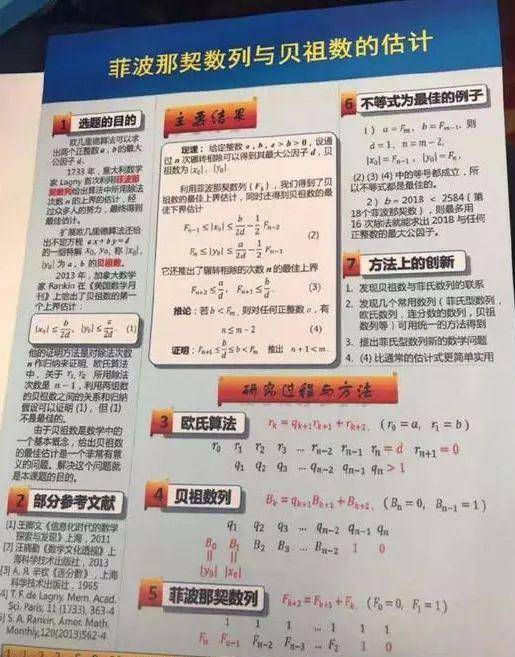 菲波那契数列与贝祖数的估计
1 选题的目的
欧几里德算法可以求
出两个正整数 a, b 的最大
公因子 d.
1733 年,意大利数学
家 Lagny 首次利用菲波那
契数列给出算法中所用除法
次数 n 的上界的估计,经
过众多人的努力,最终得到
最佳估计。
扩展欧几里德算法还给
出不定方程 ax + by = d
的一组特解 x₀, y₀, 称 |x₀|,
|y₀| 为 a, b 的贝祖数。
2013 年,加拿大数学
家 Rankin 在《美国数学月
刊》上给出了贝祖数的第一
个上界估计:
|x₀| ≤ b/2d, |y₀| ≤ a/2d. (1)
他的证明方法是对除法次数
n 作归纳来证明,欧几里德
中,关于 r₁, r₂ 所用除法
次数是 n − 1,利用两组数
的贝祖数之间的关系和归纳
假设可以证明 (1),但 (1)
不是最佳的。
由于贝祖数是数学中的
一个基本概念,给出贝祖数
的最佳估计是一个非常有意
义的问题。解决这个问题就
是本课题的目的。
2 部分参考文献
[1] 王卿文《信息化时代的数学
探索与发现》上海,2011
[2] 汪晓勤《数学文化透视》上
海科学技术出版社,2013
[3] А. Я. 辛钦《连分数》,上海
科学技术出版社,1965
[4] T. F. de Lagny. Mem. Acad.
Sci. Paris, 11 (1733), 363-4
[5] S. A. Rankin, Amer. Math.
Monthly,120(2013)562-4
主要结果
定理:给定整数 a, b, a > b > 0, 设通
过 n 次辗转相除可以得到其最大公因子 d, 贝
祖数为 |x₀|, |y₀|.
利用菲波那契数列 {Fₖ}, 我们得到了贝
祖数的最佳上界估计,同时还得到贝祖数的最
佳下界估计
Fₙ₋₁ ≤ |x₀| ≤ b/2d − 1/2 Fₙ₋₂
(2)
Fₙ ≤ |y₀| ≤ a/2d − 1/2 Fₙ₋₁
它还推出了辗转相除的次数 n 的最佳上界
Fₙ₊₂ ≤ a/d, Fₙ₊₁ ≤ b/d. (3)
推论:若 b < Fₘ, 则对任何正整数 a, 有
n ≤ m − 2 (4)
证明:Fₙ₊₁ ≤ b/d ≤ b < Fₘ 推出 n + 1 < m.
6 不等式为最佳的例子
1) a = Fₘ, b = Fₘ₋₁, 则
d = 1, n = m − 2,
|x₀| = Fₙ₋₁, |y₀| = Fₙ,
(2) (3) (4) 中的等号都成立,所
以不等式都是最佳的。
2) b = 2018 < 2584 (第
18个菲波那契数),则最多用
16 次除法就能求出 2018 与任何
正整数的最大公因子。
7 方法上的创新
1. 发现贝祖数与菲氏数列的联系
2. 发现几个常用数列(菲氏型数列,
欧氏数列,连分数的数列,贝祖
数列等)可用统一的方法得到
3. 提出菲氏型数列新的数学问题
4. (4) 比通常的估计式更简单实用
研究过程与方法
3 欧氏算法 rₖ = qₖ₊₁rₖ₊₁ + rₖ₊₂, (r₀ = a, r₁ = b)
r₀ r₁ r₂ r₃ … rₙ₋₂ rₙ₋₁ rₙ = d rₙ₊₁ = 0
q₁ q₂ q₃ … qₙ₋₂ qₙ₋₁ qₙ > 1
4 贝祖数列 Bₖ = qₖ₊₁Bₖ₊₁ + Bₖ₊₂, (Bₙ = 0, Bₙ₋₁ = 1)
q₁ q₂ q₃ … qₙ₋₂ qₙ₋₁ qₙ
B₀ B₁ B₂ B₃ … Bₙ₋₂ 1 0
|y₀| |x₀|
5 菲波那契数列 Fₖ₊₂ = Fₖ₊₁ + Fₖ, (F₀ = 0, F₁ = 1)
1 1 1 … 1 1 1
Fₙ Fₙ₋₁ Fₙ₋₂ Fₙ₋₃ … F₂ 1 0